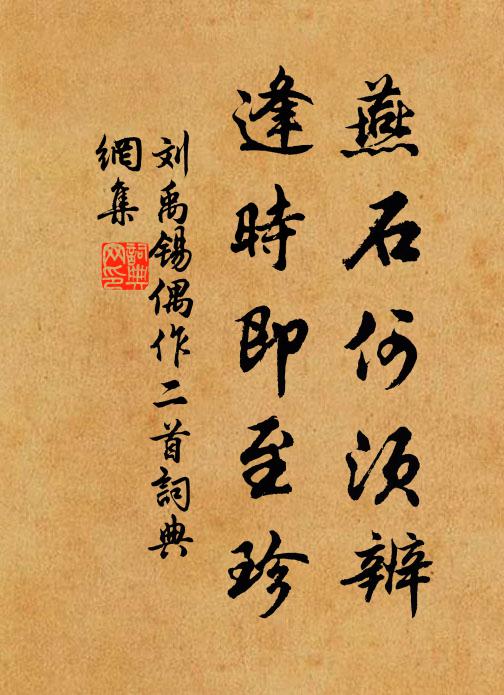 燕石何须辨
逢時即至珍
刘禹锡偶作二首詞典
網集
詞典
网印